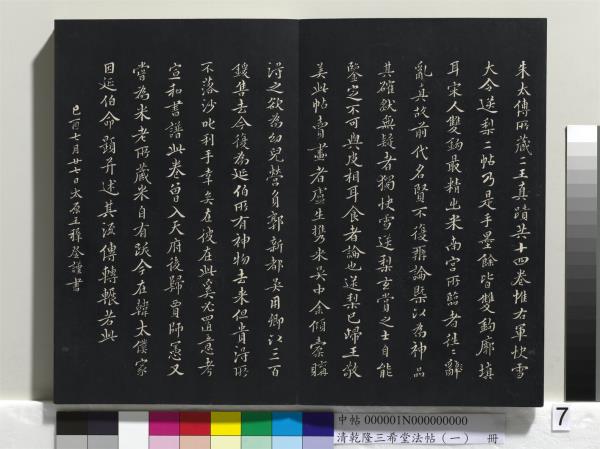 朱太傅所藏二王真蹟共十四卷惟右軍快雪
大令送梨二帖乃是手墨餘皆雙鉤廓填
耳宋人雙鉤最精出米南宮所臨者往往辭
亂真故前代名賢不復辯論槩以為神品
其確然無疑者獨快雪送梨玄賞之士自能
鑒定不可與皮相耳食者論也送梨已歸王敬
美此帖賣畫者盧生攜來吳中余傾橐購
得之欲為幼兒營負郭新都吳用卿以三百
鍰售去今復為延伯所有神物去來但貴得所
不落沙叱利手幸矣在彼在此奚足置意考
宣和書譜此卷曾入天府後歸賈師憲又
嘗為米老所藏米自有跋今在韓太僕家
因延伯命題并述其流傳轉輾若此
己酉七月廿七日太原王穉登謹書
中帖 000001N000000000
清乾隆三希堂法帖（一） 冊
7